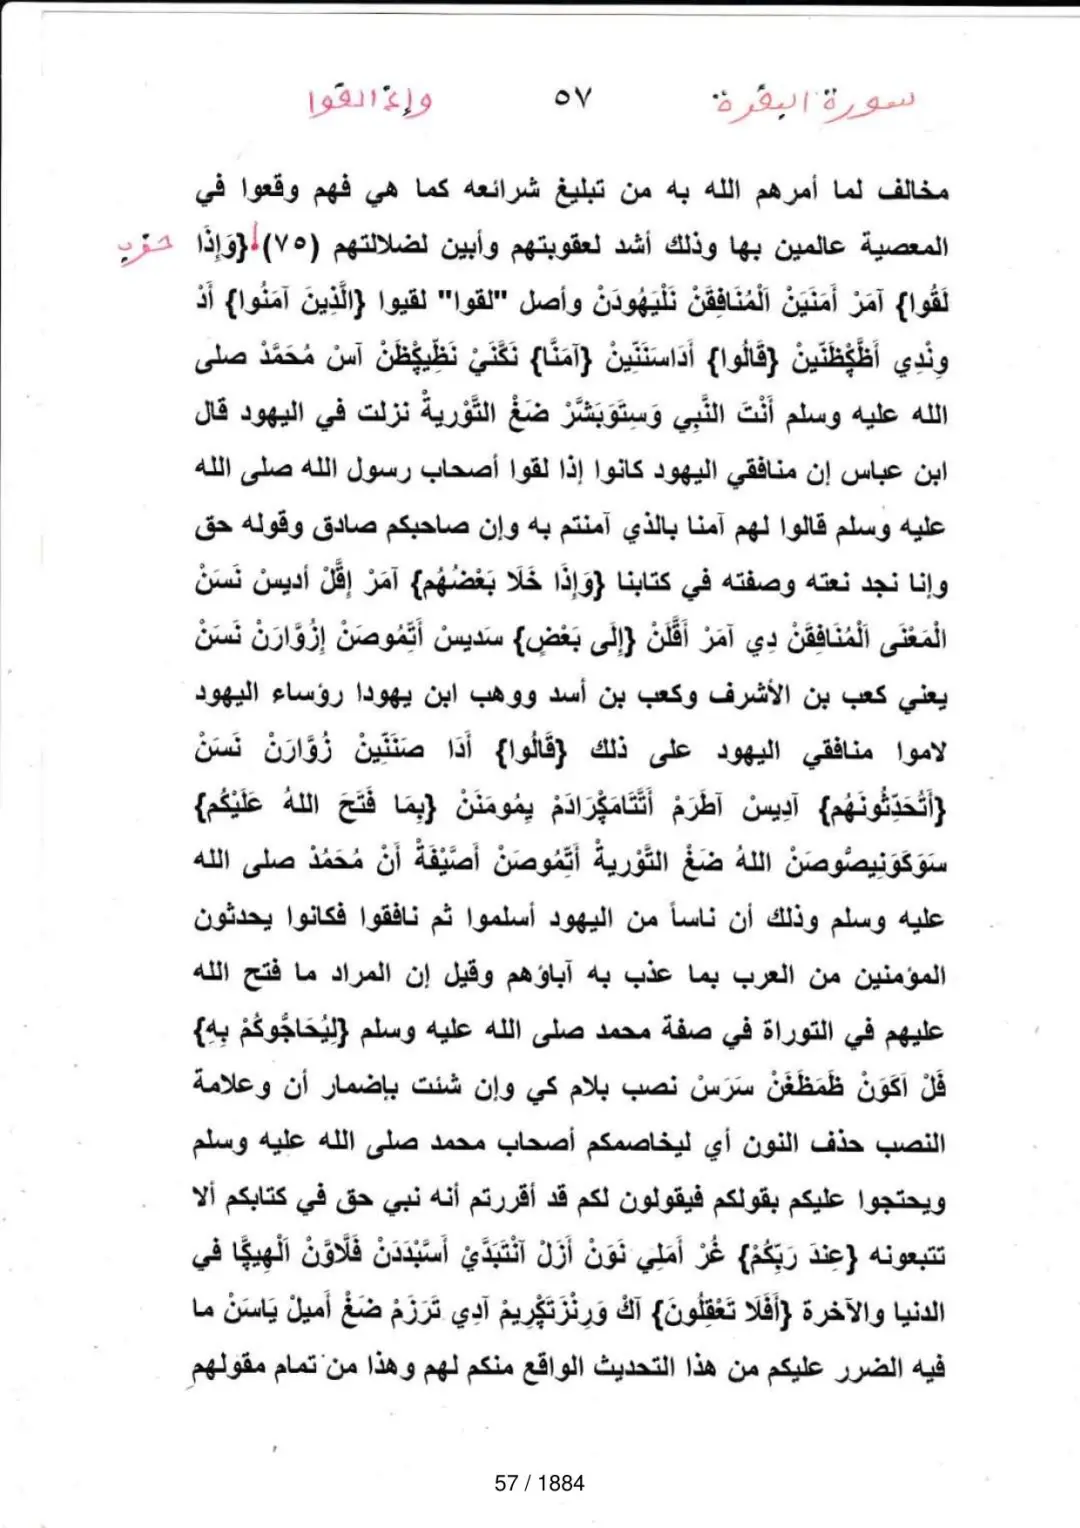 سورة البقرة ٥٧ وإذا لقوا
مخالف لما أمرهم الله به من تبليغ شرائعه كما هي فهم وقعوا في
المعصية عالمين بها وذلك أشد لعقوبتهم وأبين لضلالتهم (٧٥) {وَإِذَا حزب
لَقُوا} آمَرْ أَمَنَيَنْ اَلْمُنَافِقَنْ تَلْيَهُودَنْ وأصل "لقوا" لقيوا {الَّذِينَ آمَنُوا} أَدْ
وِنْدِي أَظَّكِظَنِّينْ {قَالُوا} أَدَاسَنَنِّينْ {آمَنَّا} نَكَّنَيْ نَظِّيكِظَنْ آسْ مُحَمَّدْ صلى
الله عليه وسلم أَنْتَ النَّبِي وَسِتَوَبَشَّرْ ضَغْ التَّوْرِيةْ نزلت في اليهود قال
ابن عباس إن منافقي اليهود كانوا إذا لقوا أصحاب رسول الله صلى الله
عليه وسلم قالوا لهم آمنا بالذي آمنتم به وإن صاحبكم صادق وقوله حق
وإنا نجد نعته وصفته في كتابنا {وَإِذَا خَلَا بَعْضُهُم} آمَرْ إِقَّلْ أديسْ نَسَنْ
الْمَعْنَى اَلْمُنَافِقَنْ دِي آمَرْ أَقَّلَنْ {إِلَى بَعْضٍ} سَديسْ أَتِّمُوصَنْ إِزُوَّارَنْ نَسَنْ
يعني كعب بن الأشرف وكعب بن أسد ووهب ابن يهودا رؤساء اليهود
لاموا منافقي اليهود على ذلك {قَالُوا} أَدَا صَنَنِّينْ زُوَّارَنْ نَسَنْ
{أَتُحَدِّثُونَهُم} آدِيسْ آطَرَمْ أَتَّتَامَكِرَادَمْ يِمُومَنَنْ {بِمَا فَتَحَ اللهُ عَلَيْكُم}
سَوَكَوَنِيصُّوصَنْ اللهُ ضَغْ التَّوْرِيةْ أَتِّمُوصَنْ أَصِّيْفَةْ أَنْ مُحَمَّدْ صلى الله
عليه وسلم وذلك أن ناساً من اليهود أسلموا ثم نافقوا فكانوا يحدثون
المؤمنين من العرب بما عذب به آباؤهم وقيل إن المراد ما فتح الله
عليهم في التوراة في صفة محمد صلى الله عليه وسلم {لِيُحَاجُّوكُمْ بِهِ}
فَلْ اَكَوَنْ ظَمَظَغَنْ سَرَسْ نصب بلام كي وإن شئت بإضمار أن وعلامة
النصب حذف النون أي ليخاصمكم أصحاب محمد صلى الله عليه وسلم
ويحتجوا عليكم بقولكم فيقولون لكم قد أقررتم أنه نبي حق في كتابكم ألا
تتبعونه {عِندَ رَبِّكُمْ} غُرْ أَمَلِي نَوَنْ أَزَلْ آنْتَبَدَّيْ أَسَبْدَدَنْ فَلَّاوَنْ اَلْهِيكَّا في
الدنيا والآخرة {أَفَلَا تَعْقِلُونَ} آكْ وَرِنْزَتَكِّرِيمْ آدِي تَرَزَمْ ضَغْ أميلْ يَاسَنْ ما
فيه الضرر عليكم من هذا التحديث الواقع منكم لهم وهذا من تمام مقولهم
57 / 1884